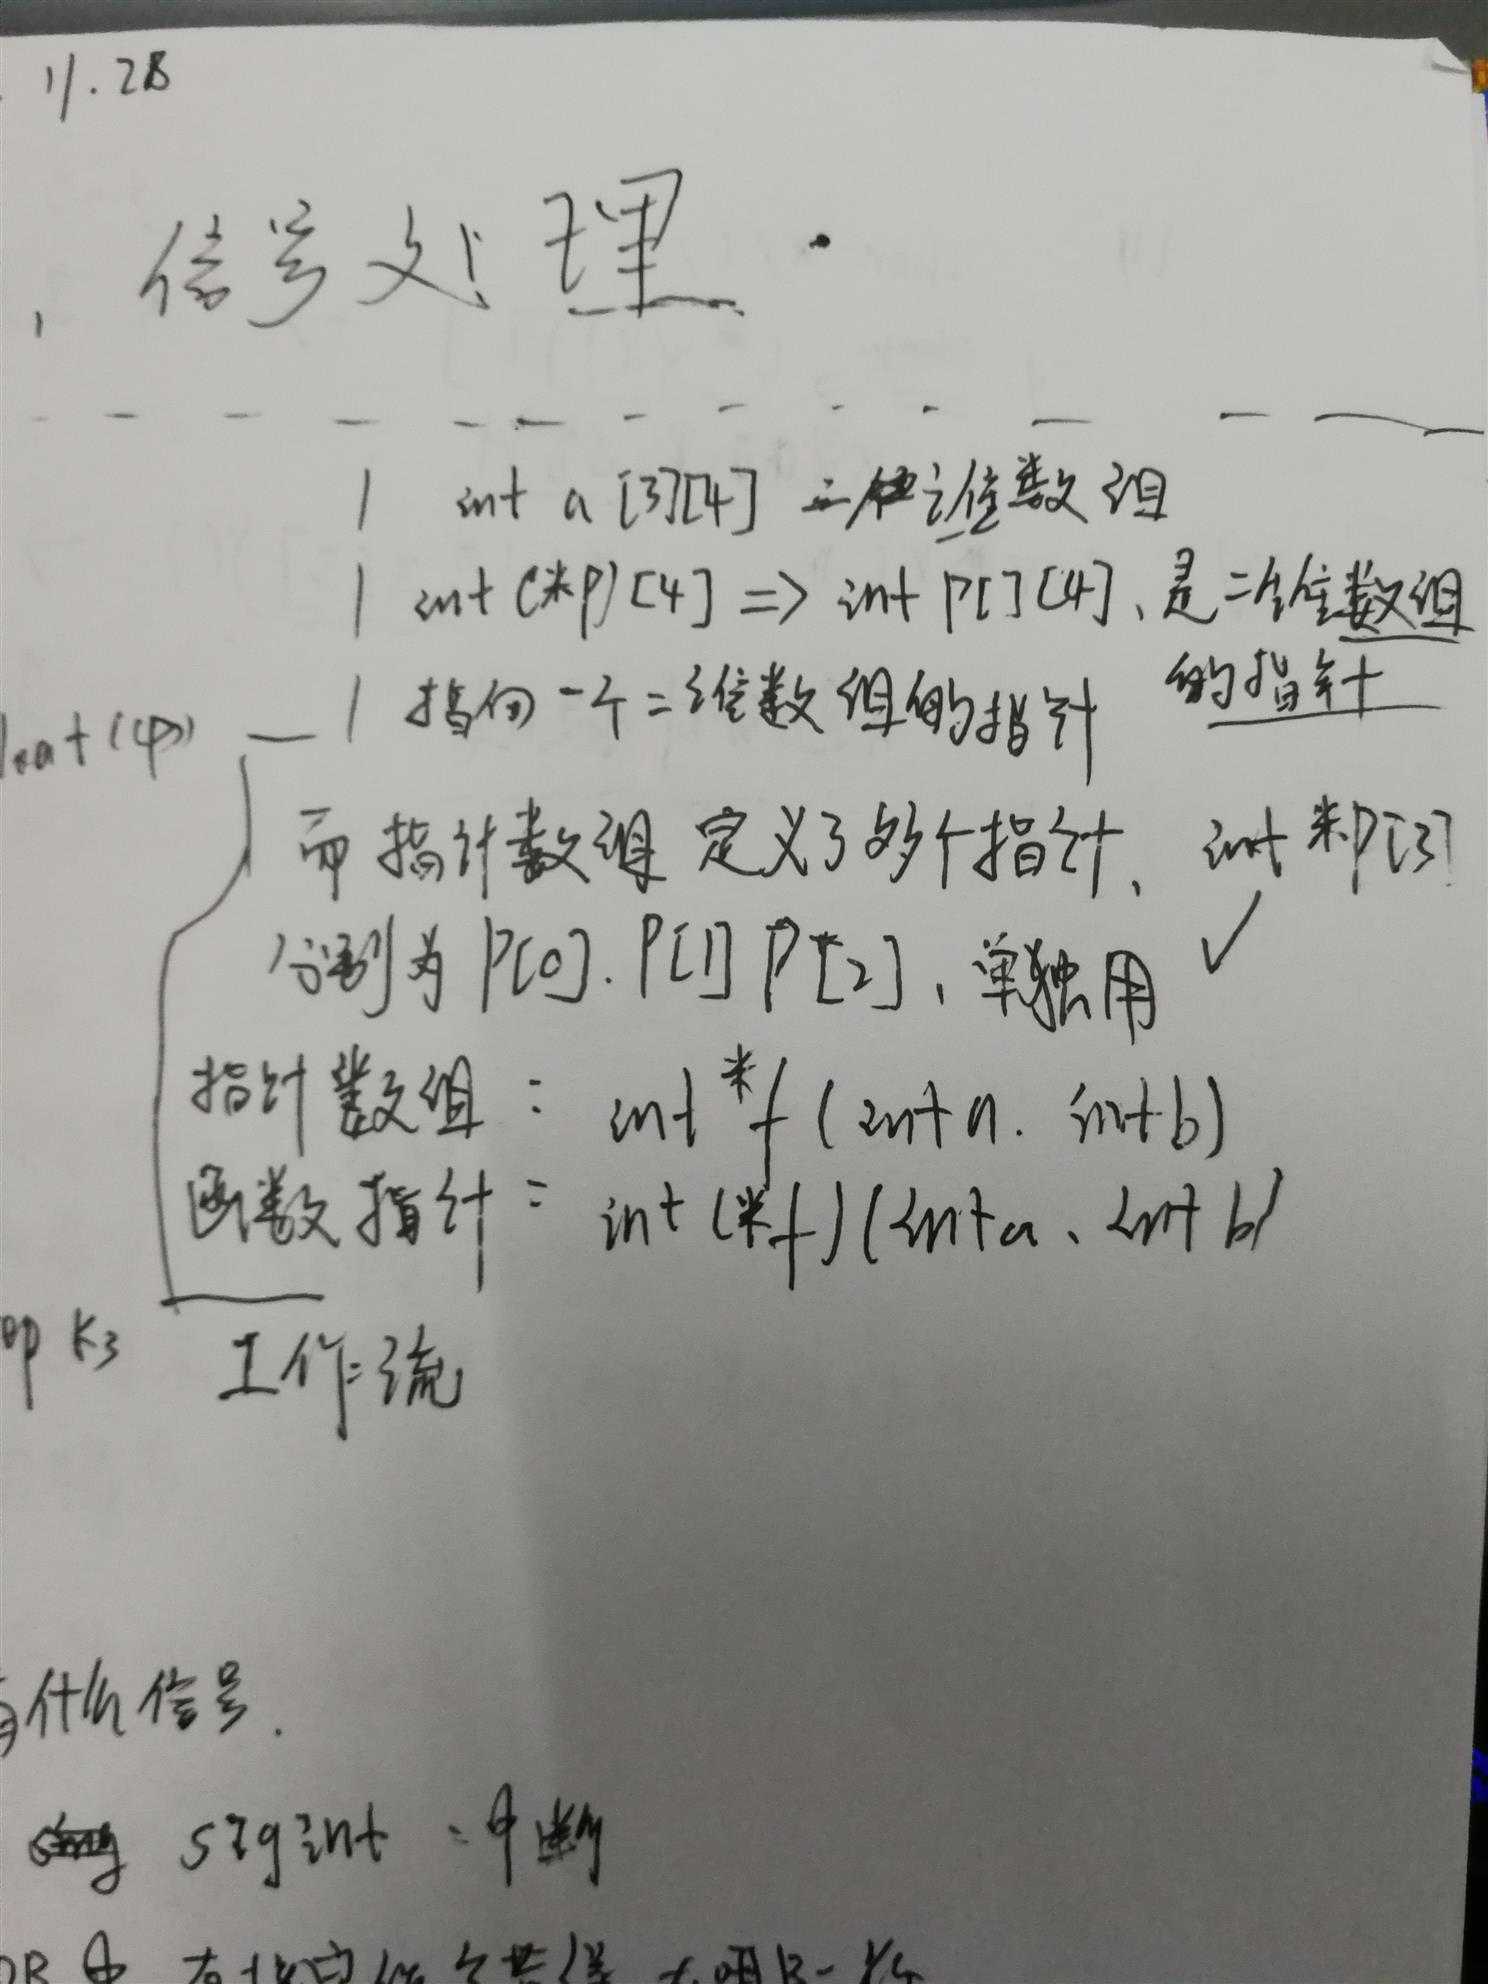 11.28
信号处理
int a[3][4] 二维数组
int (*p)[4] => int P[][4]、是二维数组
的指针
指向一个二维数组的指针
而指针数组定义了多个指针、int *P[3]
分别为 P[0]. P[1] P[2]、单独用 ✓
指针数组: int *f (int a. int b)
函数指针: int (*f)(int a、int b)
K3 工作流
有什么信号.
sigint: 中断